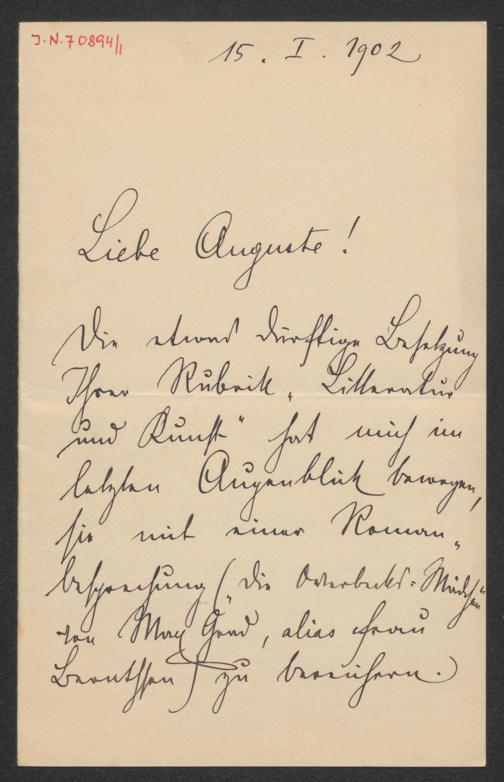 J.N. 70894/1
15. I. 1902
Liebe Auguste!
Die etwas dürftige Besetzung
Ihrer Rubrik „Litteratur
und Kunst" hat mich im
letzten Augenblick bewogen,
sie mit einer Roman-
besprechung („Die Overbecks-Mädchen"
von Max Grad, alias Frau
Bernthsen) zu bereichern.